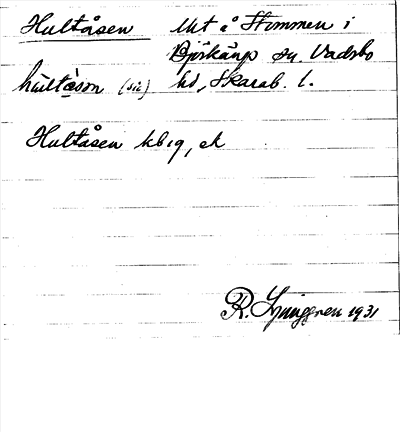 Hultåsen Ukt å Stommen i
Björkäng sn. Vadsbo
hultåson (sic) hd, Skarab. l.
Hultåsen kb 19, ek
R. Ljunggren 1931